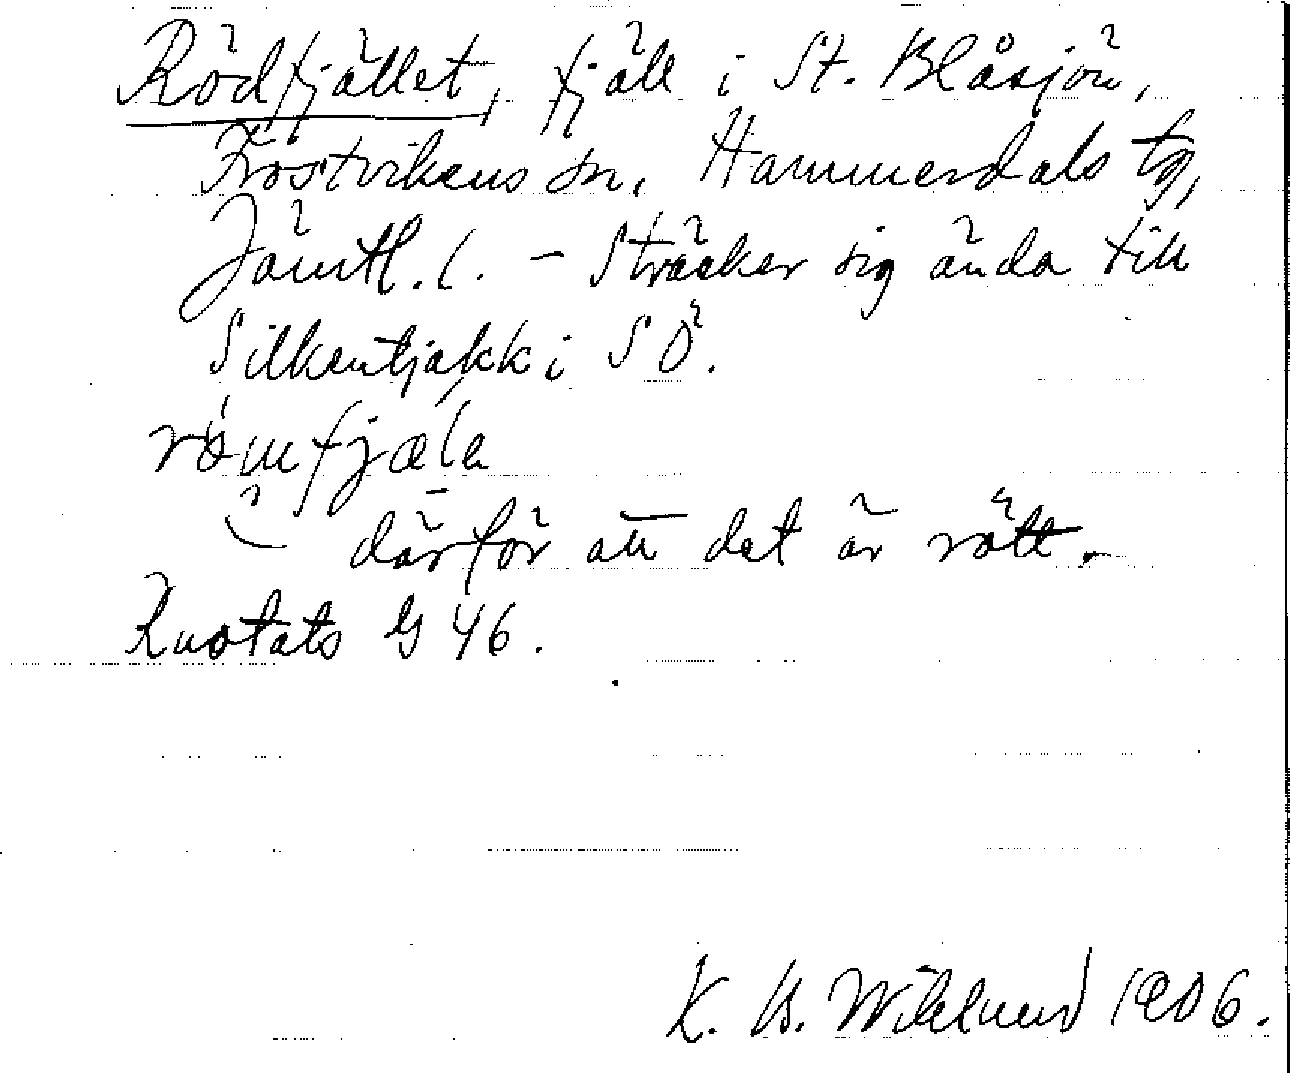 Rödfjället, fjäll i St. Blåsjön,
Frostvikens sn, Hammerdals tg,
Jämtl. l. – Sträcker sig ända till
Silkentjakk i SÖ.
därför att det är rött.
G 46.
K. B. Wiklund 1906.